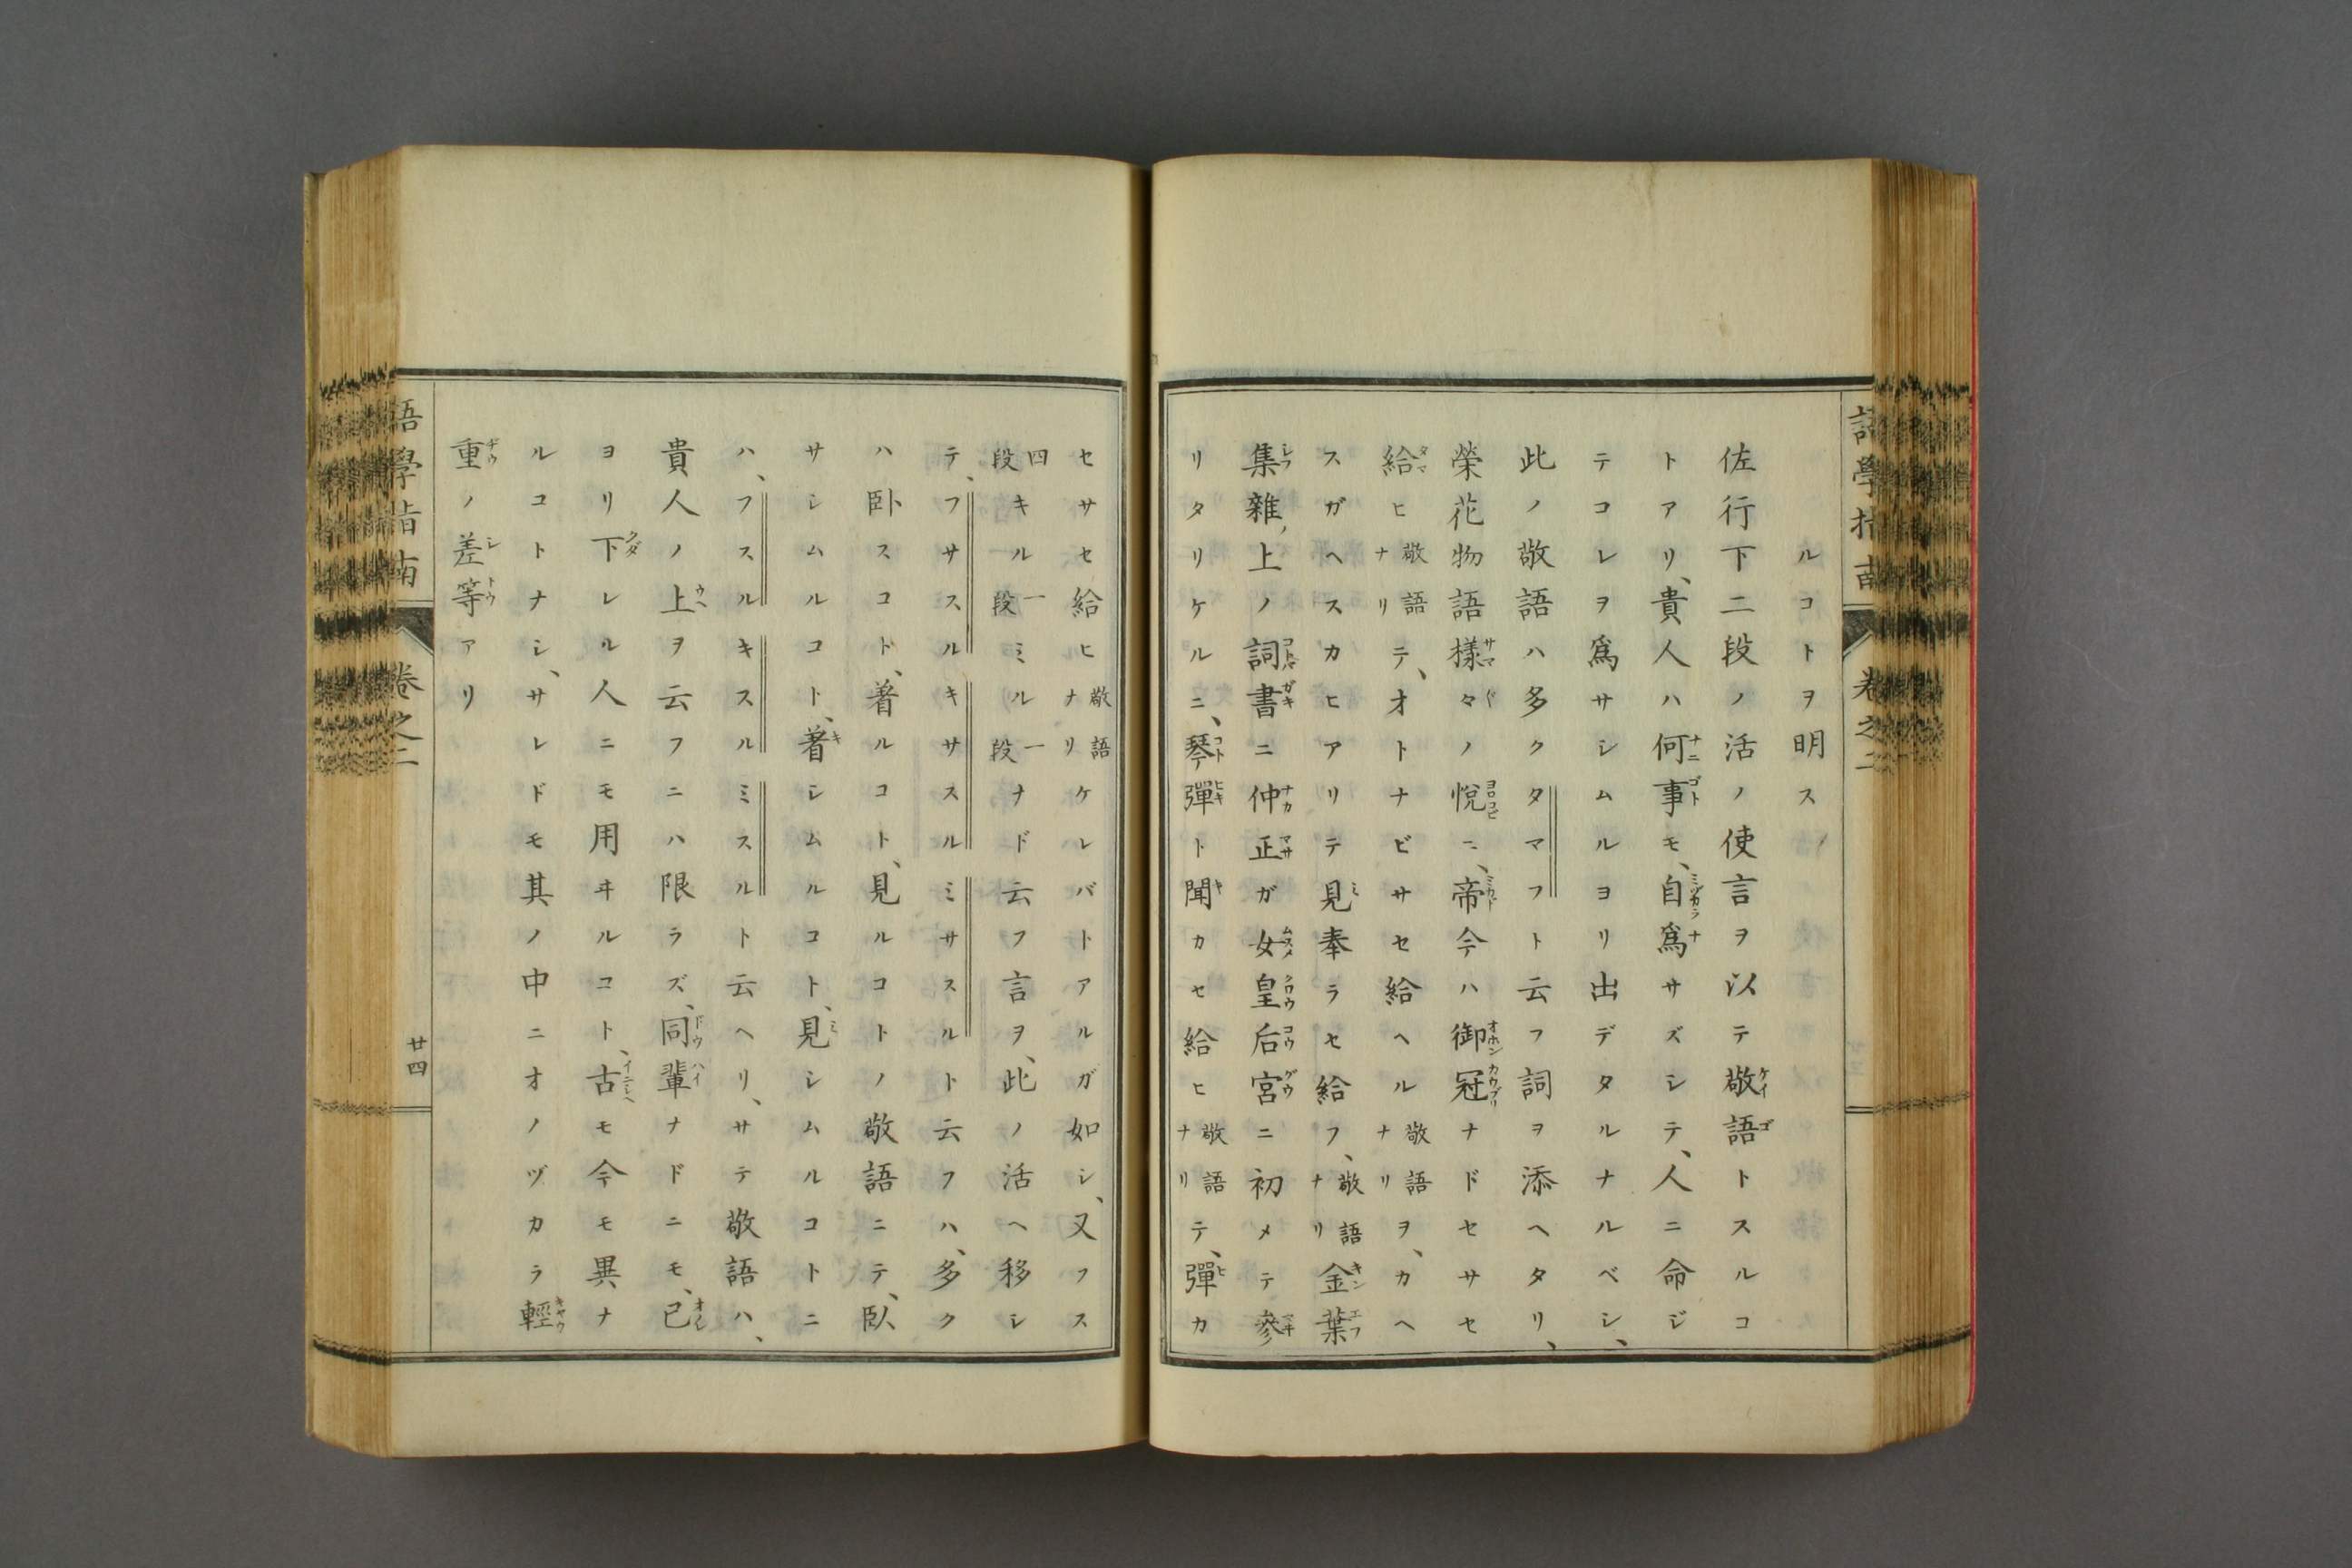 語學指南
卷之二
ルコトヲ明ス
佐行下二段ノ活ノ使言ヲ以テ敬語トスルコ
トアリ、貴人ハ何事モ、自爲サズシテ、人ニ命ジ
テコレヲ爲サシムルヨリ出デタルナルベシ、
此ノ敬語ハ多クタマフト云フ詞ヲ添ヘタリ、
榮花物語樣々ノ悅ニ、帝今ハ御冠ナドセサセ
給ヒ敬語ナリテ、オトナビサセ給ヘル敬語ナリヲ、カヘ
スガヘスカヒアリテ見奉ラセ給フ、敬語ナリ金葉
集雜ノ上ノ詞書ニ仲正ガ女皇后宮ニ初メテ參
リタリケルニ、琴彈ト聞カセ給ヒ敬語ナリテ、彈カ
セサセ給ヒ敬語ナリケレバトアルガ如シ、又フス
四段キル一段ミル一段ナド云フ言ヲ、此ノ活ヘ移シ
テ、フサスルキサスルミサスルト云フハ、多ク
ハ臥スコト、着ルコト、見ルコトノ敬語ニテ、臥
サシムルコト、着シムルコト、見シムルコトニ
ハ、フスルキスルミスルト云ヘリ、サテ敬語ハ、
貴人ノ上ヲ云フニハ限ラズ、同輩ナドニモ、己
ヨリ下レル人ニモ用ヰルコト、古モ今モ異ナ
ルコトナシ、サレドモ其ノ中ニオノヅカラ輕
重ノ差等アリ
語學指南
卷之二
廿四